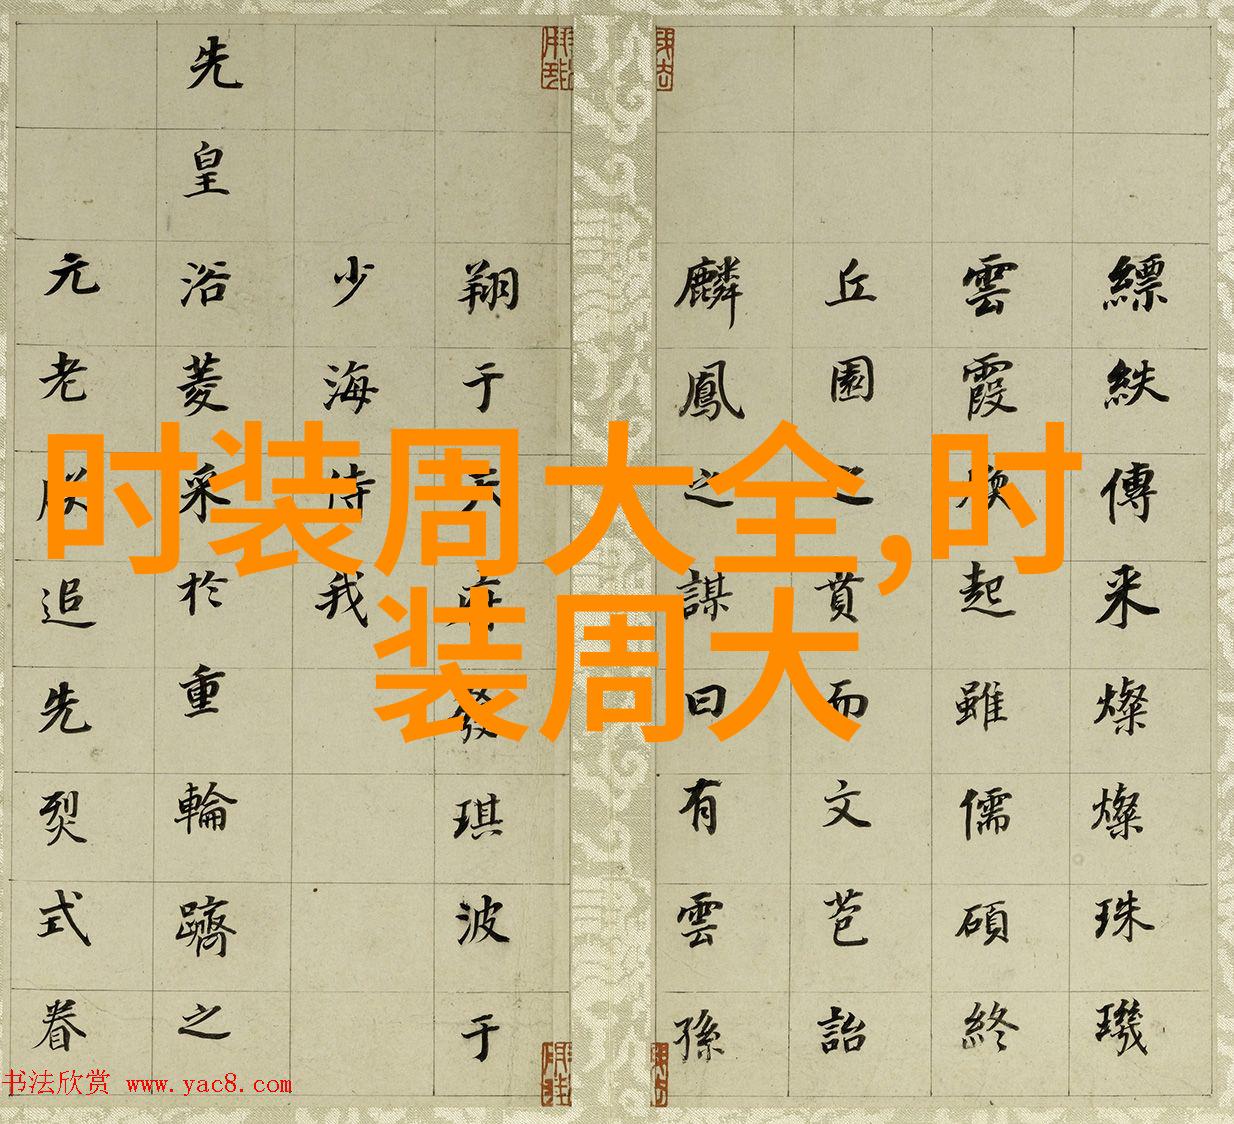 縹紩傳来燦燦珠璣
雲霞起雖儒碩終
丘園之賁而文苞詒
麟鳳之謀曰有雲孫
翔于天府發琪波于
少海侍我
先皇浴菱采於重輪躋之
元老朕追先烈式眷
时装周大全,时
装周大
书法欣赏 www.yac8.com